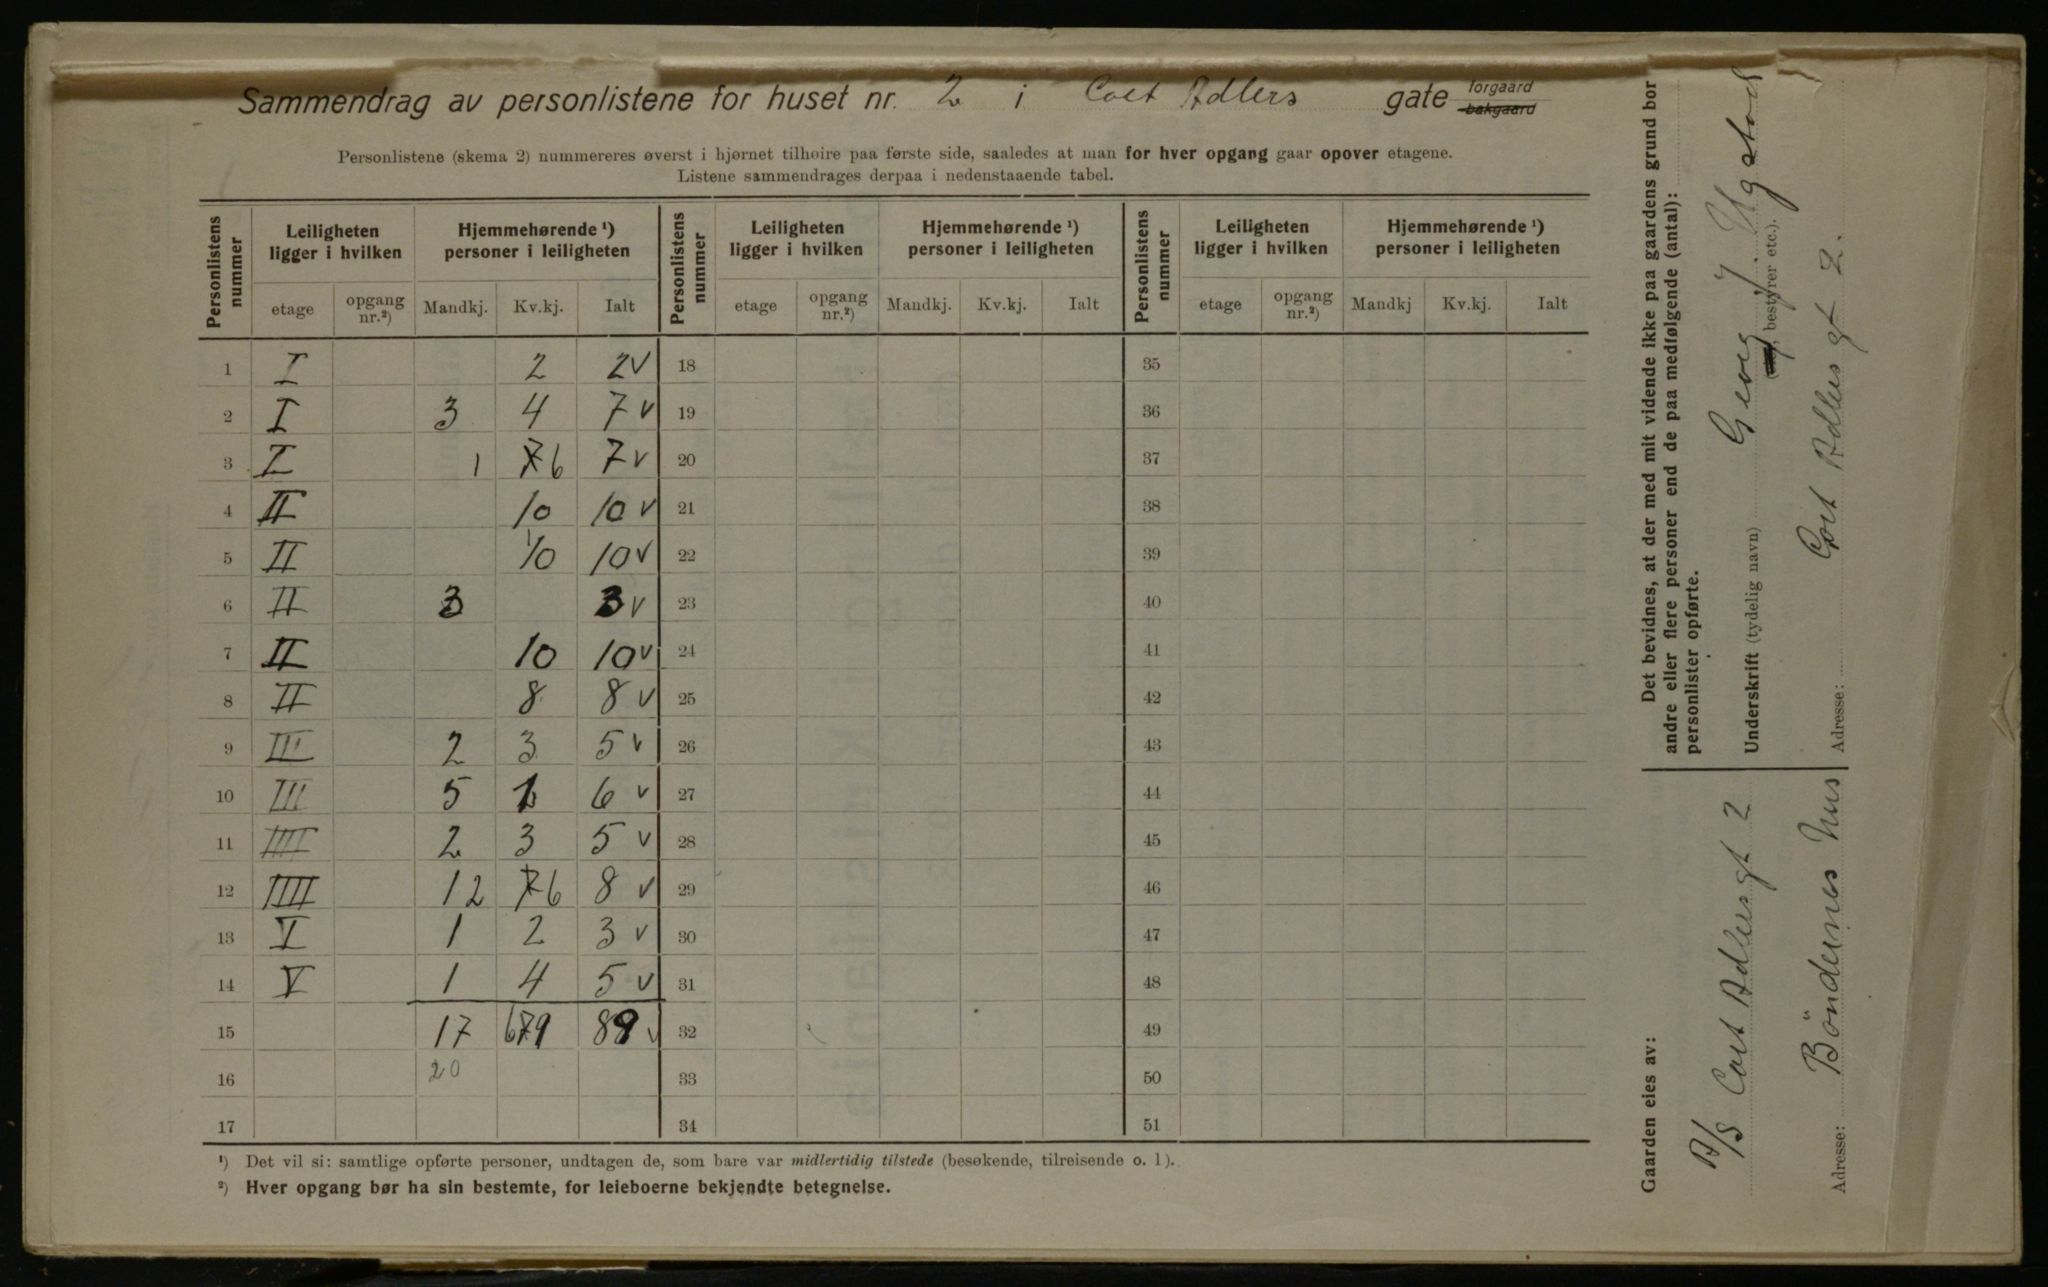 Sammendrag av personlistene for huset nr. 2 i Cort Adlers gate forgaard bakgaard
Personlistene (skema 2) nummereres øverst i hjørnet tilhøire paa første side, saaledes at man for hver opgang gaar opover etagene.
Listene sammendrages derpaa i nedenstaaende tabel.
Personlistens nummer Leiligheten ligger i hvilken Hjemmehørende ¹) personer i leiligheten Personlistens nummer Leiligheten ligger i hvilken Hjemmehørende ¹) personer i leiligheten Personlistens nummer Leiligheten ligger i hvilken Hjemmehørende ¹) personer i leiligheten
etage opgang nr.²) Mandkj. Kv.kj. Ialt etage opgang nr.²) Mandkj. Kv.kj. Ialt etage opgang nr.²) Mandkj Kv.kj. Ialt
1 I 2 2 v 18 35
2 I 3 4 7 v 19 36
3 I 1 7 6 7 v 20 37
4 II 10 10 v 21 38
5 II 10 10 v 22 39
6 II 3 3 v 23 40
7 II 10 10 v 24 41
8 II 8 8 v 25 42
9 III 2 3 5 v 26 43
10 III 5 1 6 v 27 44
11 IIII 2 3 5 v 28 45
12 IIII 1 2 7 6 8 v 29 46
13 V 1 2 3 v 30 47
14 V 1 4 5 v 31 48
15 17 89 v 32 49
16 20 33 50
17 34 51
¹) Det vil si: samtlige opførte personer, undtagen de, som bare var midlertidig tilstede (besøkende, tilreisende o. l).
²) Hver opgang bør ha sin bestemte, for leieboerne bekjendte betegnelse.
Det bevidnes, at der med mit vidende ikke paa gaardens grund bor
andre eller flere personer end de paa medfølgende (antal):
personlister opførte.
Underskrift (tydelig navn) Georg J.
bestyrer etc.).
Adresse: Cort Adlers gt 2.
Gaarden eies av:
A/S Cort Adlersgt 2
Adresse: Böndernes Hus